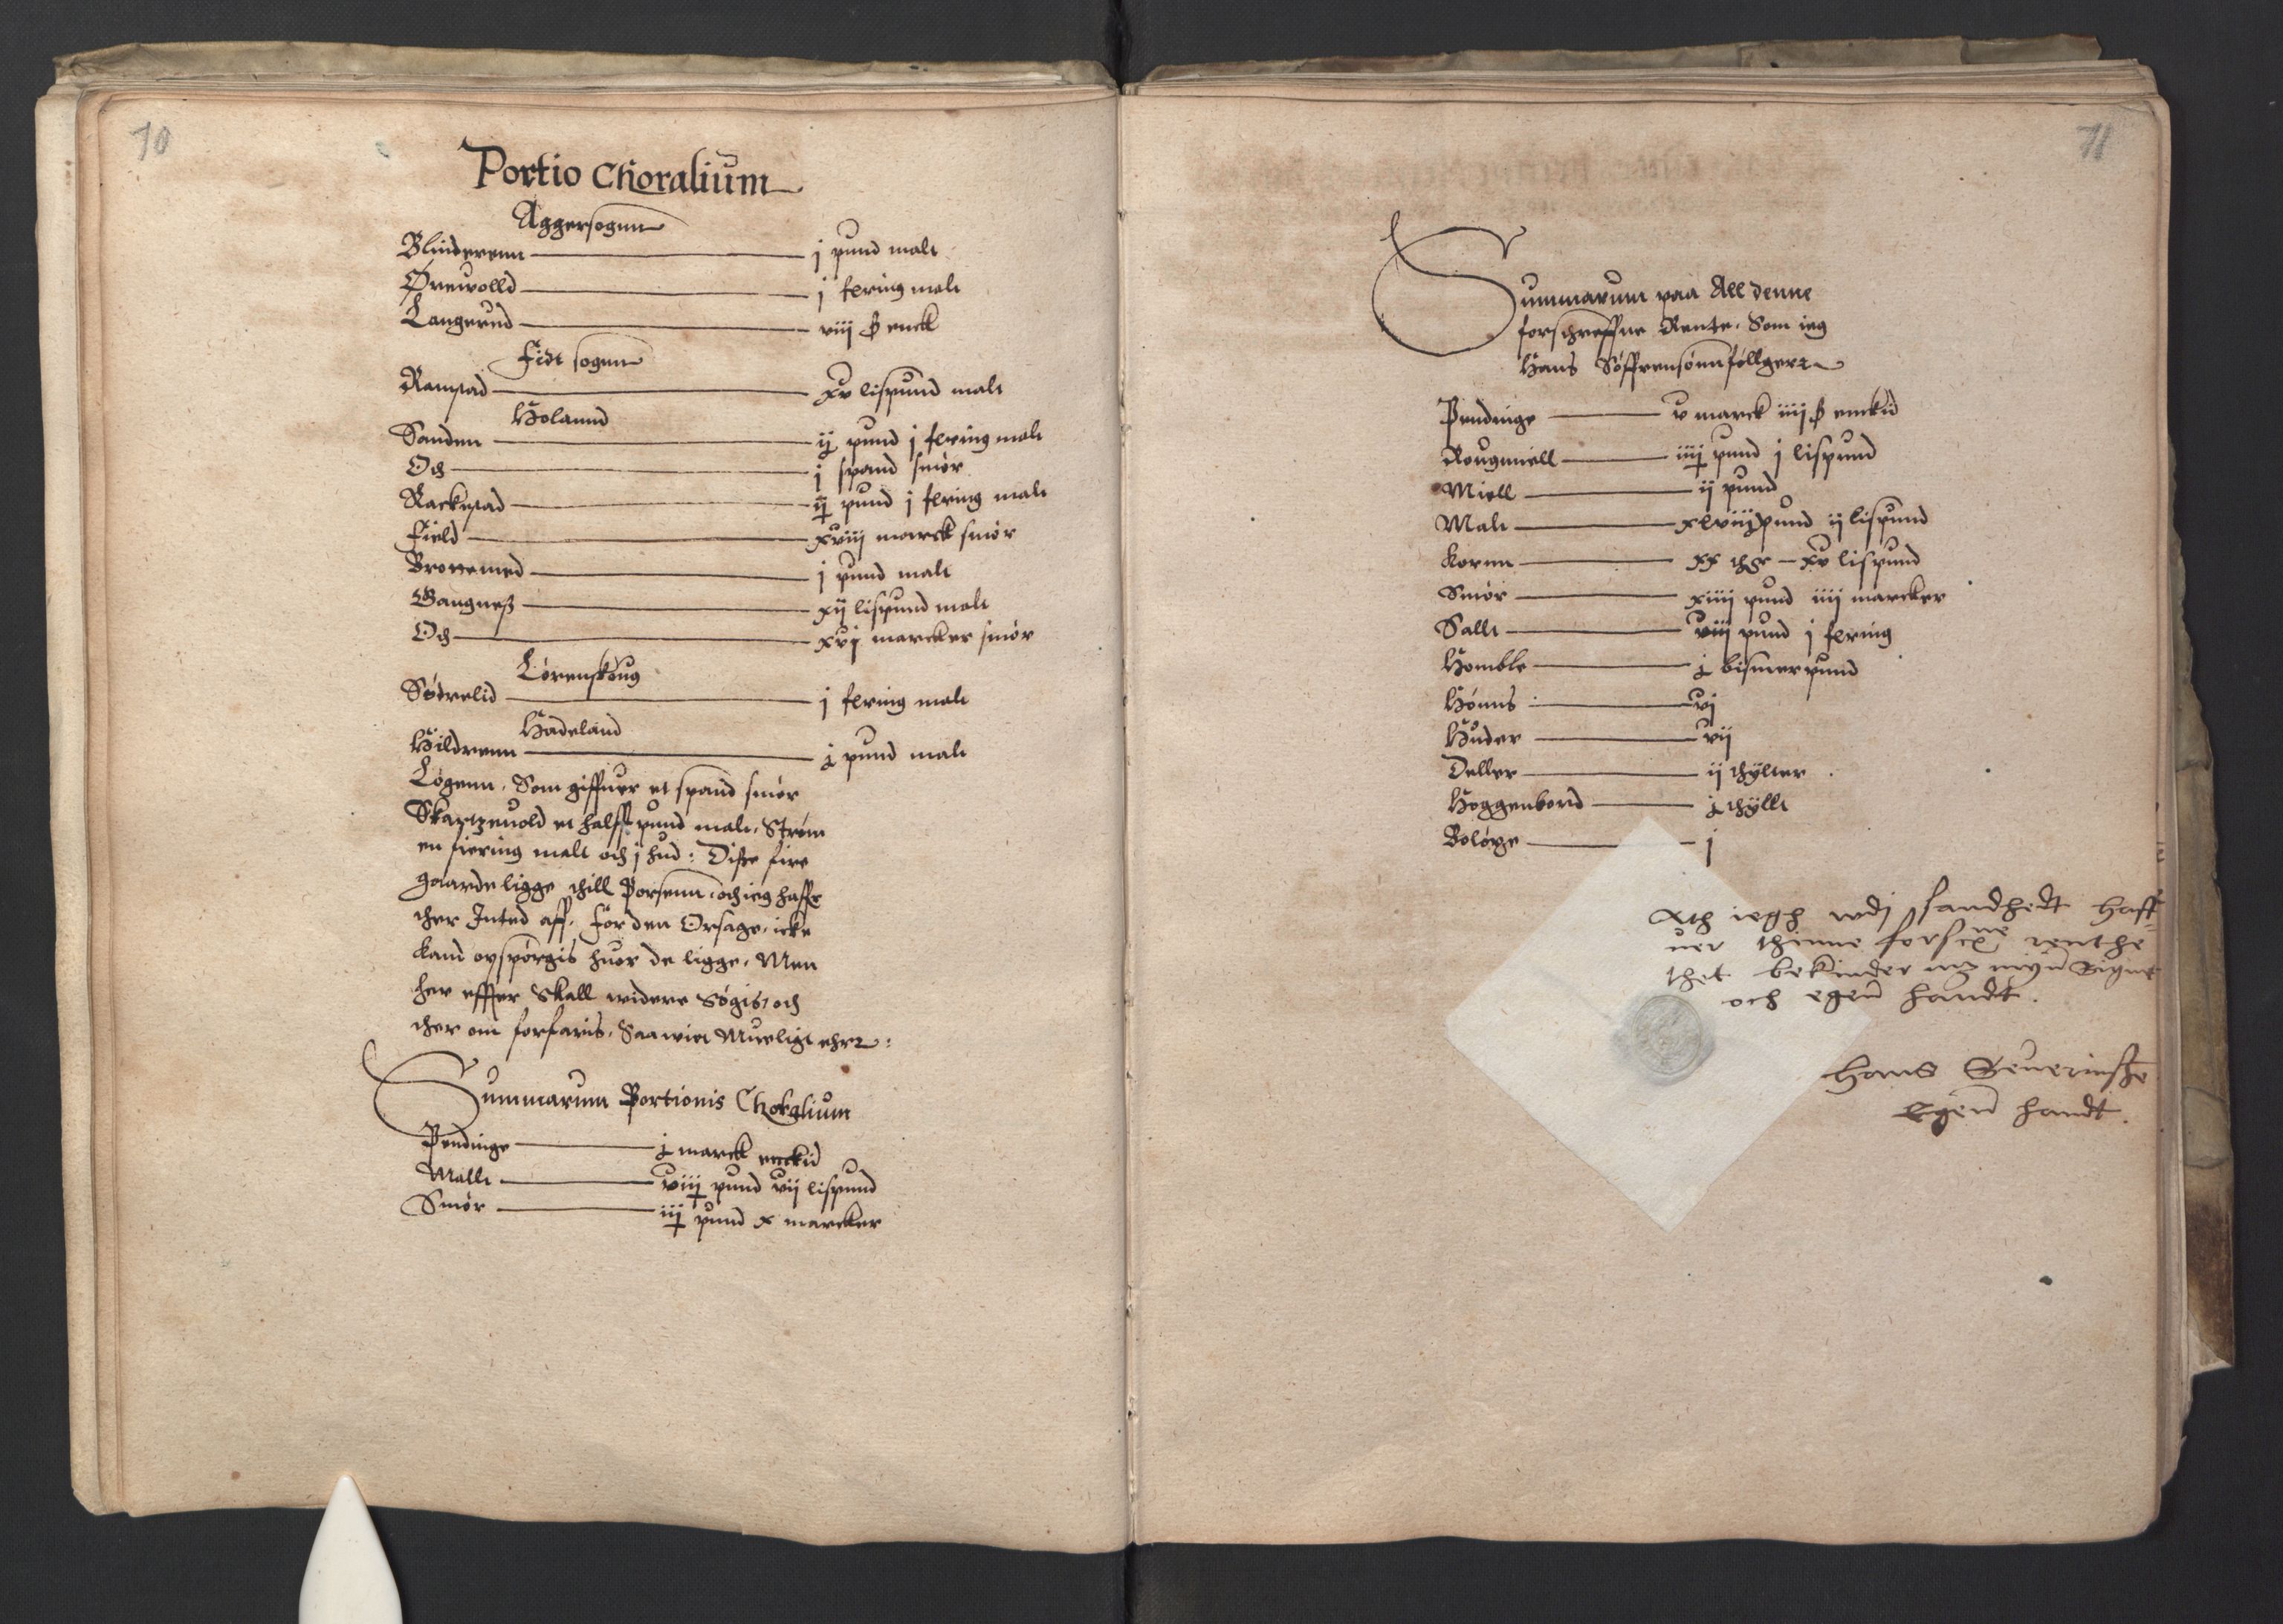 70
Portio Choralium
Aggersognn
Blinderenn j pund malt
Ørewolld j fering malt
Langerud viij ß enck
Fidt sognn
Ramstad xv lispund malt
Holannd
Sanden ij pund j fering malt
Och j spand smør
Rackestad ij pund j fering malt
Field xviij marck smør
j pund malt
Gangneß xij lispund malt
Och xvj marcker smør
Lørenskoug
Sødrelid j fering malt
Hadeland
Hildrenn j pund malt
Løgenn, Som giffuer et spand smør
et halfft pund malt, Strøm
en fiering malt och j hud: Disse fire
gaarde ligge thill Porsenn, och ieg haffr
ther Inted aff, for den Orsage, icke
kand opspørgis huor de ligge, Men
her effter Skall widere Søgis, och
ther om forfaris, Saa wiet Mueligt ehre:
Summarum Portionis Choralium
Pendinge j marck enckid
Malltt viij pund vij lispund
Smør iij pund x marcker
71
Summarum paa All denne
forschreffne Rente, Som ieg
Hans Søffrensønn føllgere
Pendinge v marck iiij ß enckid
Rougmiell iiij pund j lispund
Miell ij pund
Malt xlviij pund ij lispund
Kornn xx xv lispund
Smør xiiij pund iiij marcker
Salltt viij pund j fering
Homble j bismerpund
Hønns vj
Huder vij
Deller ij thylter
Hoggenbord j thyllt
Boløxe j
Ath iegh wdj sandhedt haff=
uer thenne forscne renthe
thet bekinder mz miin Signet
och egen handt.
Hans Seuerinssøn
Egen handt.